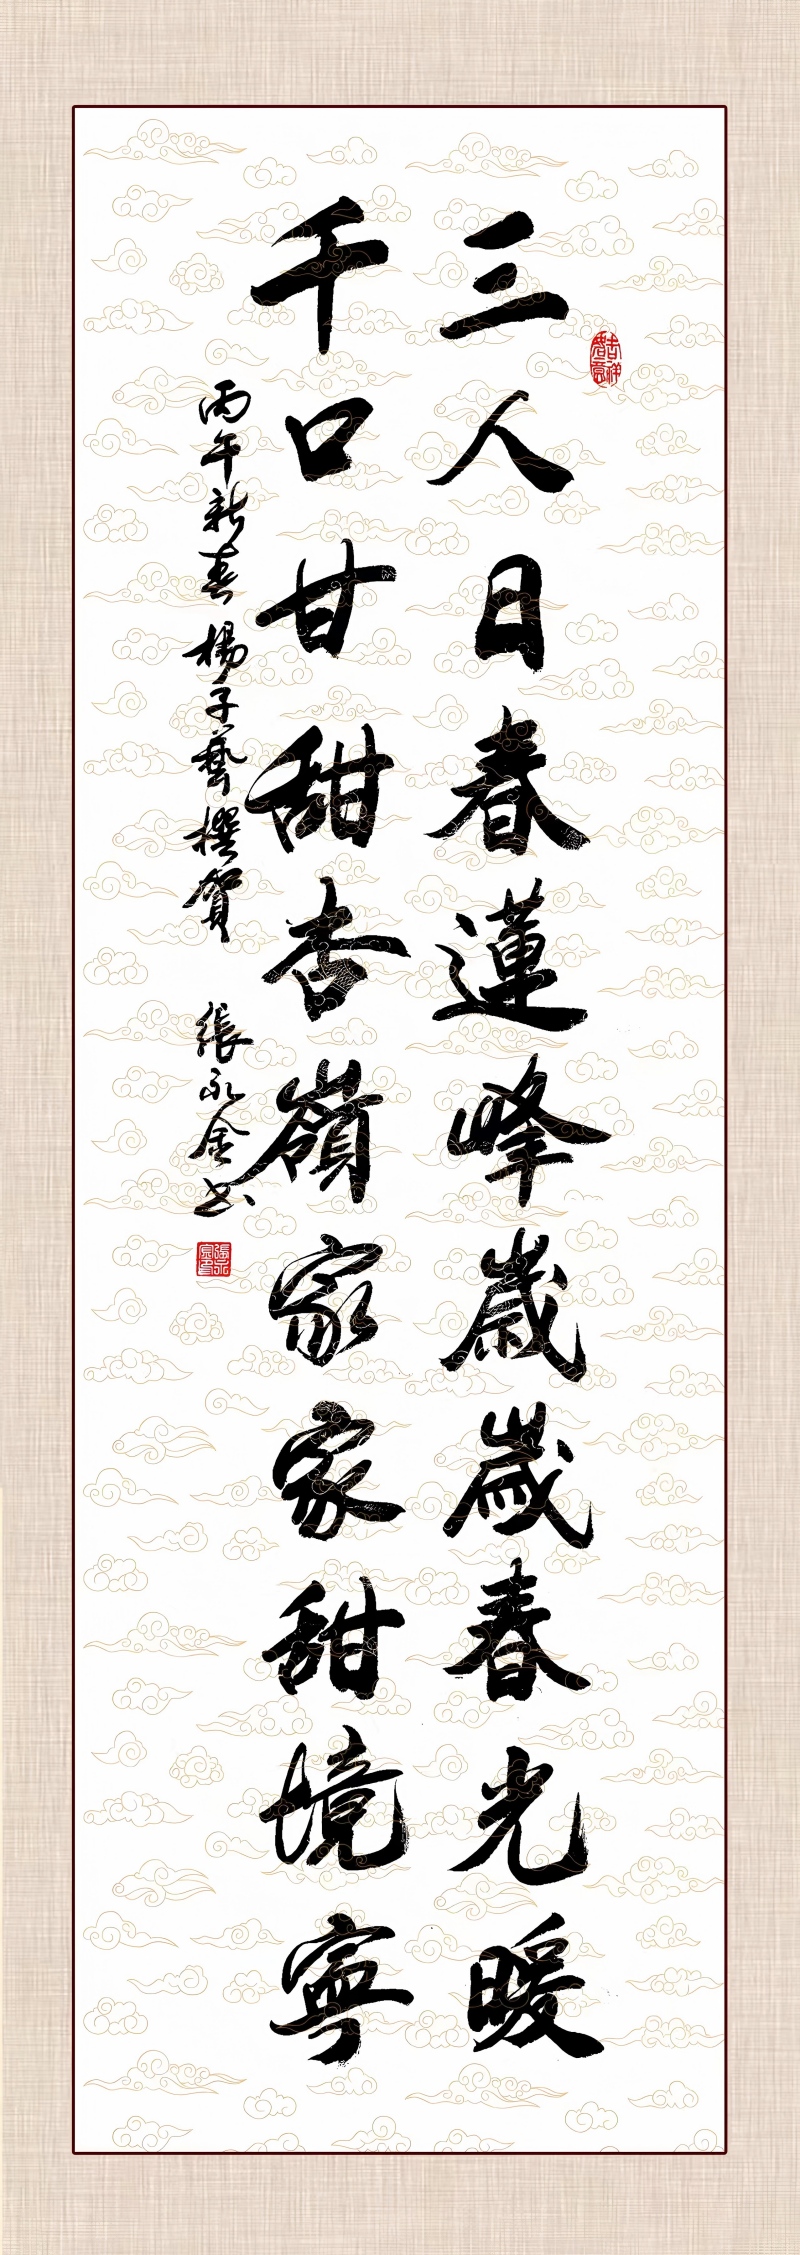 三人日春蓮峰歲歲春光暖
千口甘甜杏嶺家家甜境寧
丙午新春楊子藝撰賀 張永金书
吉祥如意